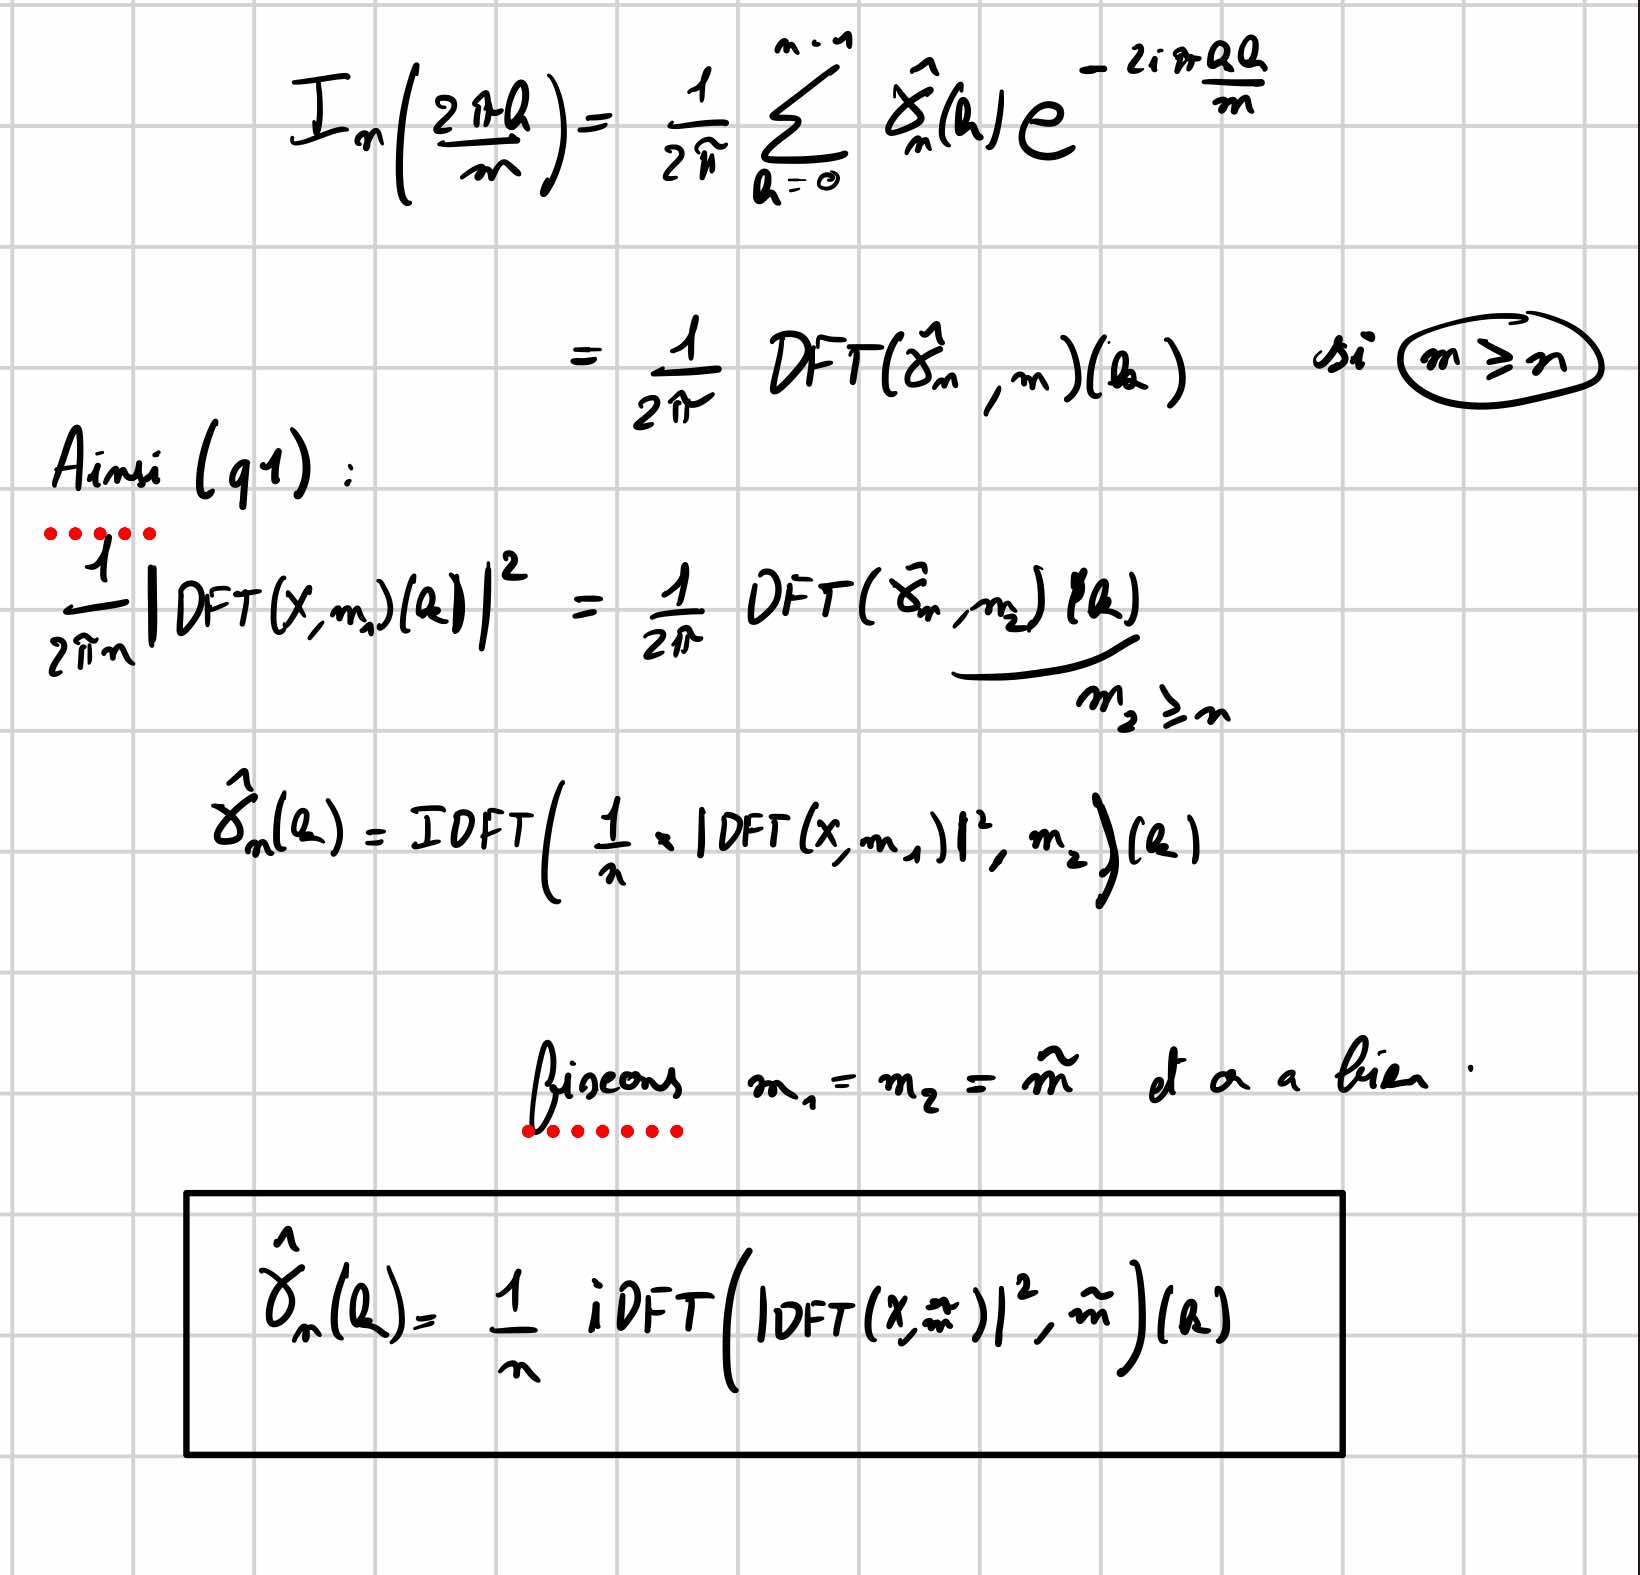 I_n(2πk/m) = 1/2π ∑_{k=0}^{n-1} γ̂_n(k) e^{-2iπkk/m}
= 1/2π DFT(γ̂_n, m)(k) si m ≥ n
Ainsi (q1) :
1/2πn |DFT(X, m₁)(k)|² = 1/2π DFT(γ̂_n, m₂)(k)
m₂ ≥ n
γ̂_n(k) = IDFT(1/n × |DFT(X, m₁)|², m₂)(k)
fixons m₁ = m₂ = m̃ et on a bien .
γ̂_n(k) = 1/n iDFT(|DFT(X, m̃)|², m̃)(k)